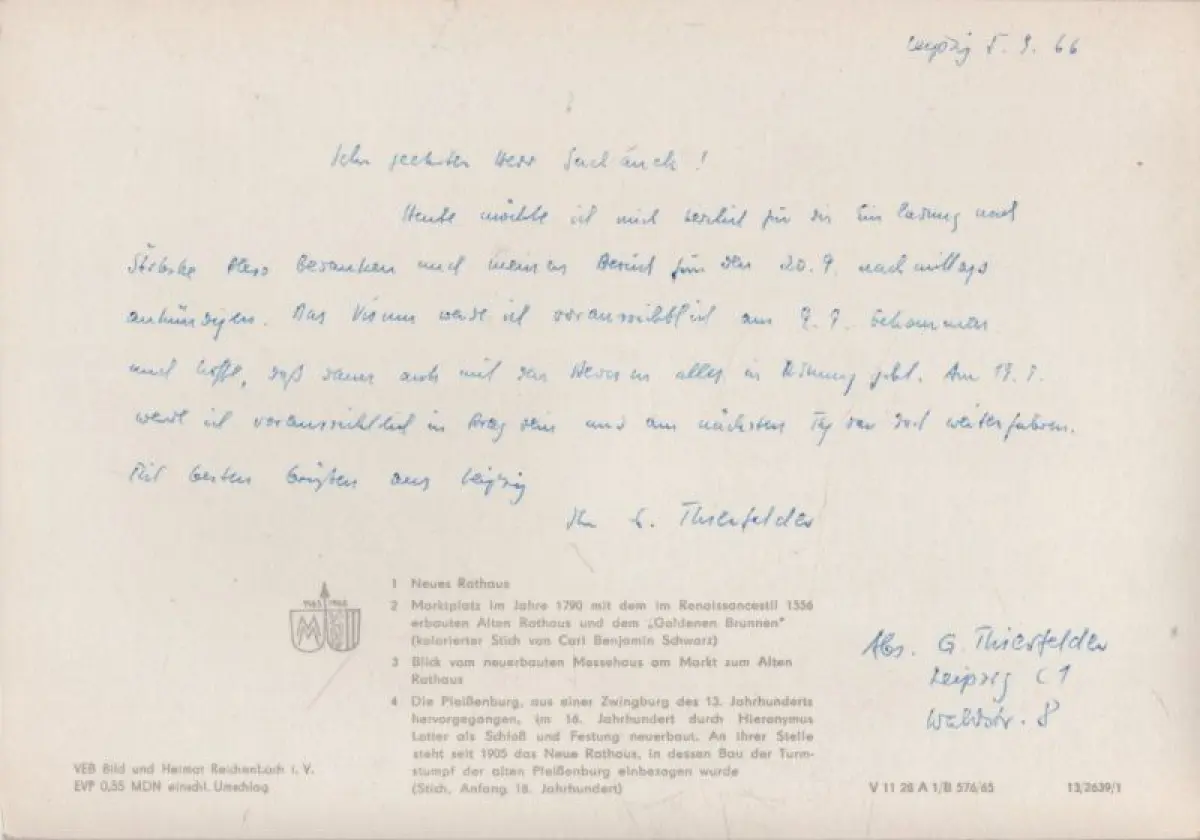 Leipzig 5. 9. 66
Sehr geehrter Herr !
Heute möchte ich mich herzlich für die Einladung nach
bedanken und meinen Besuch für den 20. 9. nachmittags
ankündigen. Das Visum werde ich voraussichtlich am 9. 9. bekommen
und hoffe, daß dann auch mit den alles in Ordnung geht. Am 17. 9.
werde ich voraussichtlich in Prag sein und am nächsten Tag von dort weiterfahren.
Mit besten Grüßen aus Leipzig
Ihr G. Thierfelder
1 Neues Rathaus
2 Marktplatz im Jahre 1790 mit dem im Renaissancestil 1556
erbauten Alten Rathaus und dem „Goldenen Brunnen"
(kolorierter Stich von Carl Benjamin Schwarz)
3 Blick vom neuerbauten Messehaus am Markt zum Alten
Rathaus
4 Die Pleißenburg, aus einer Zwingburg des 13. Jahrhunderts
hervorgegangen, im 16. Jahrhundert durch Hieronymus
Lotter als Schloß und Festung neuerbaut. An ihrer Stelle
steht seit 1905 das Neue Rathaus, in dessen Bau der Turm-
stumpf der alten Pleißenburg einbezogen wurde
(Stich, Anfang 18. Jahrhundert)
Abs. G. Thierfelder
Leipzig C 1
Waldstr. 8
VEB Bild und Heimat Reichenbach i. V.
EVP 0,55 MDN einschl. Umschlag
V 11 28 A 1/B 576/65
13/2639/1